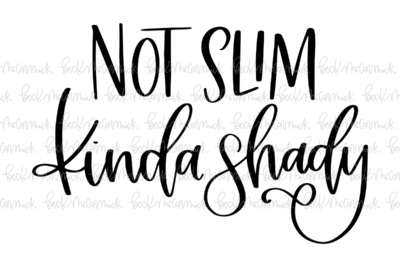 NOT SLIM
kinda shady